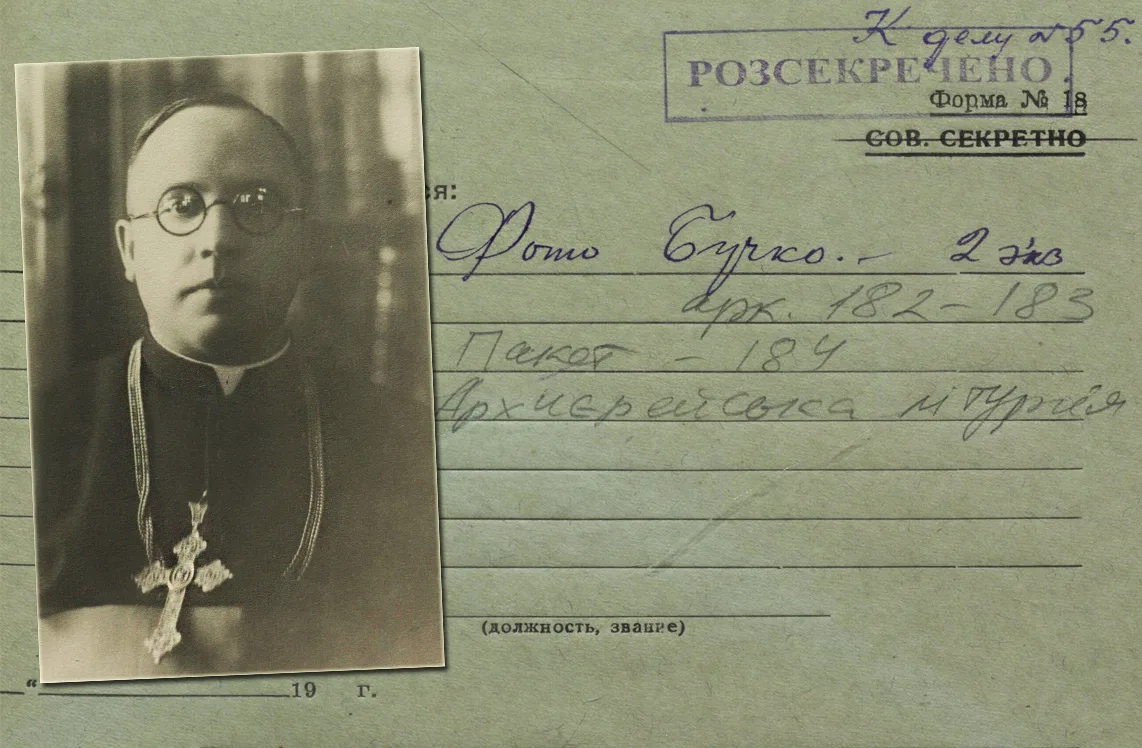 К делу № 55.
РОЗСЕКРЕЧЕНО
Форма № 18
СОВ. СЕКРЕТНО
ся:
Фото Бучко. – 2 экз
арк. 182–183
Пакет – 184
Архиєрейська літургія
(должность, звание)
“ 19 г.